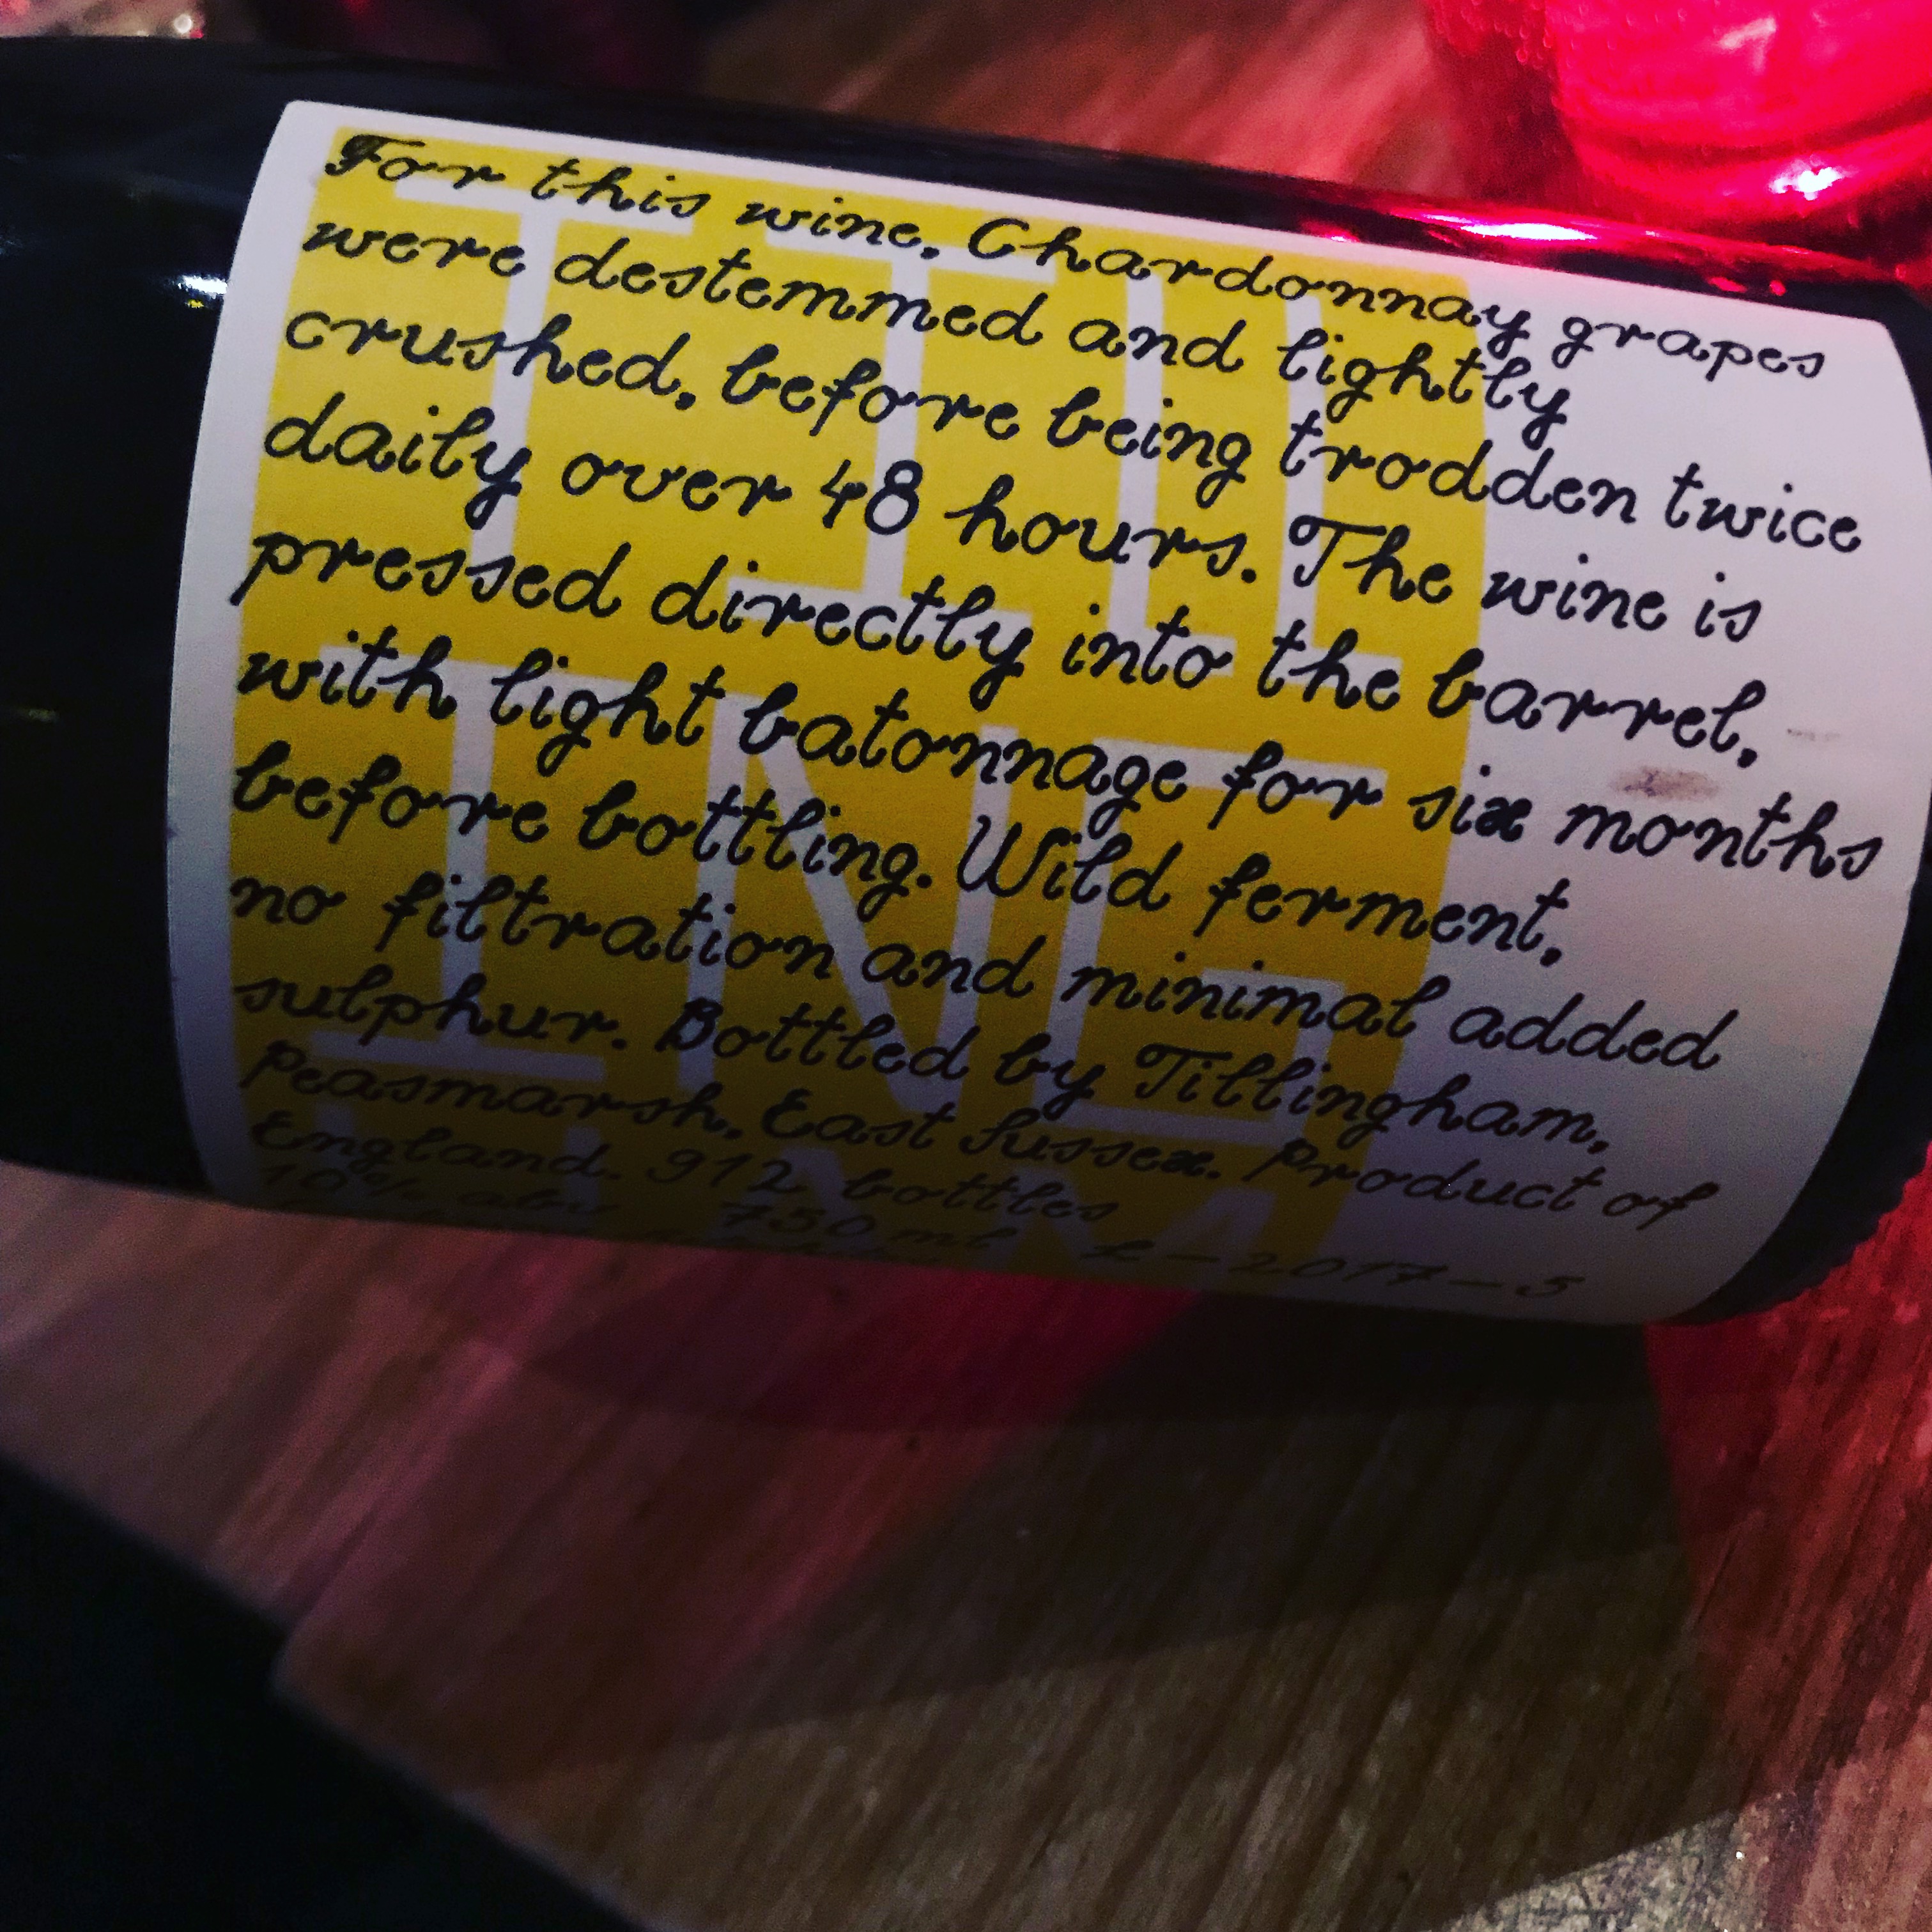 For this wine, Chardonnay grapes
were destemmed and lightly
crushed, before being trodden twice
daily over 48 hours. The wine is
pressed directly into the barrel,
with light batonnage for six months
before bottling. Wild ferment,
no filtration and minimal added
sulphur. Bottled by Tillingham,
Peasmarsh, East Sussex. Product of
England. 912 bottles
10% abv 750 ml L-2017-5
TILL
INGH
AM